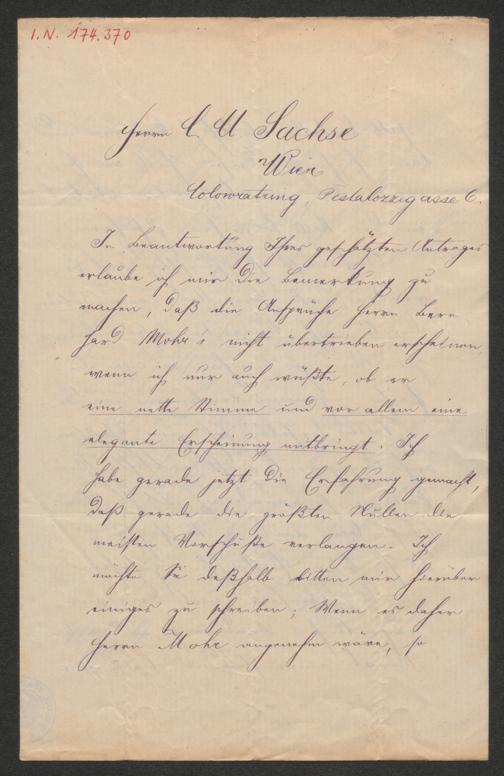 I.N. 174.370
Herrn C U Sachse
Wien
Colowratring, Pestalozzigasse 6.
In Beantwortung Ihres geschätzten Antrages
erlaube ich mir die Bemerkung zu
machen, daß die Ansprüche Herrn Bern
hard Mohr's nicht übertrieben erscheinen,
wenn ich nur auch wüßte, ob er
eine nette Stimme und vor allem eine
elegante Erscheinung mitbringt. Ich
habe gerade jetzt die Erfahrung gemacht,
daß gerade die größten Nullen die
meisten Vorschüße verlangen. Ich
möchte Sie deßhalb bitten mir hierüber
einiges zu schreiben; Wenn es daher
Herrn Mohr angenehm wäre, so